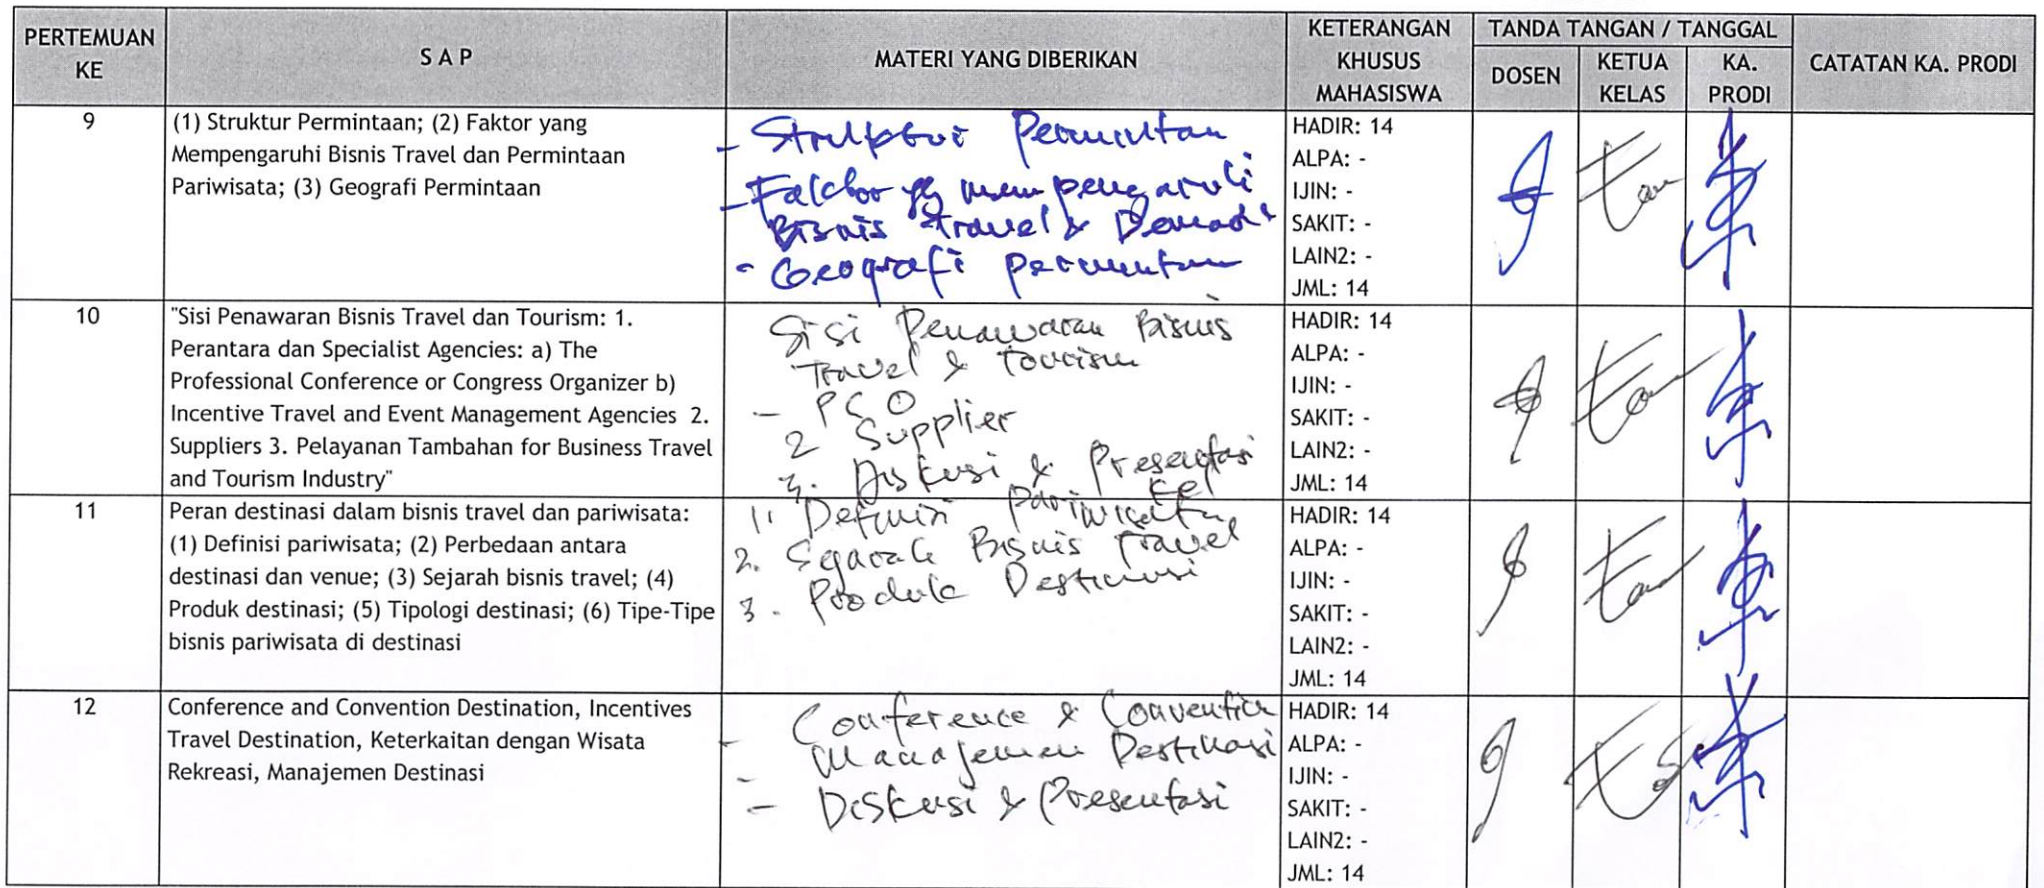 PERTEMUAN KE
S A P
MATERI YANG DIBERIKAN
KETERANGAN KHUSUS MAHASISWA
TANDA TANGAN / TANGGAL
DOSEN
KETUA KELAS
KA. PRODI
CATATAN KA. PRODI
9
(1) Struktur Permintaan; (2) Faktor yang
Mempengaruhi Bisnis Travel dan Permintaan
Pariwisata; (3) Geografi Permintaan
- Struktur Permintan
- Faktor yg mempengaruhi
Bisnis Travel & Demand
- Geografi permintan
HADIR: 14
ALPA: -
IJIN: -
SAKIT: -
LAIN2: -
JML: 14
10
"Sisi Penawaran Bisnis Travel dan Tourism: 1.
Perantara dan Specialist Agencies: a) The
Professional Conference or Congress Organizer b)
Incentive Travel and Event Management Agencies 2.
Suppliers 3. Pelayanan Tambahan for Business Travel
and Tourism Industry"
Sisi Penawaran Bisnis
Travel & Tourism
- PCO
2 Supplier
3. Diskusi & Presentasi
Kel
HADIR: 14
ALPA: -
IJIN: -
SAKIT: -
LAIN2: -
JML: 14
11
Peran destinasi dalam bisnis travel dan pariwisata:
(1) Definisi pariwisata; (2) Perbedaan antara
destinasi dan venue; (3) Sejarah bisnis travel; (4)
Produk destinasi; (5) Tipologi destinasi; (6) Tipe-Tipe
bisnis pariwisata di destinasi
1. Definisi pariwisata
2. Sejarah Bisnis Travel
3. Produk Destinasi
HADIR: 14
ALPA: -
IJIN: -
SAKIT: -
LAIN2: -
JML: 14
12
Conference and Convention Destination, Incentives
Travel Destination, Keterkaitan dengan Wisata
Rekreasi, Manajemen Destinasi
- Conference & Convention
- Manajemen Destinasi
- Diskusi & Presentasi
HADIR: 14
ALPA: -
IJIN: -
SAKIT: -
LAIN2: -
JML: 14